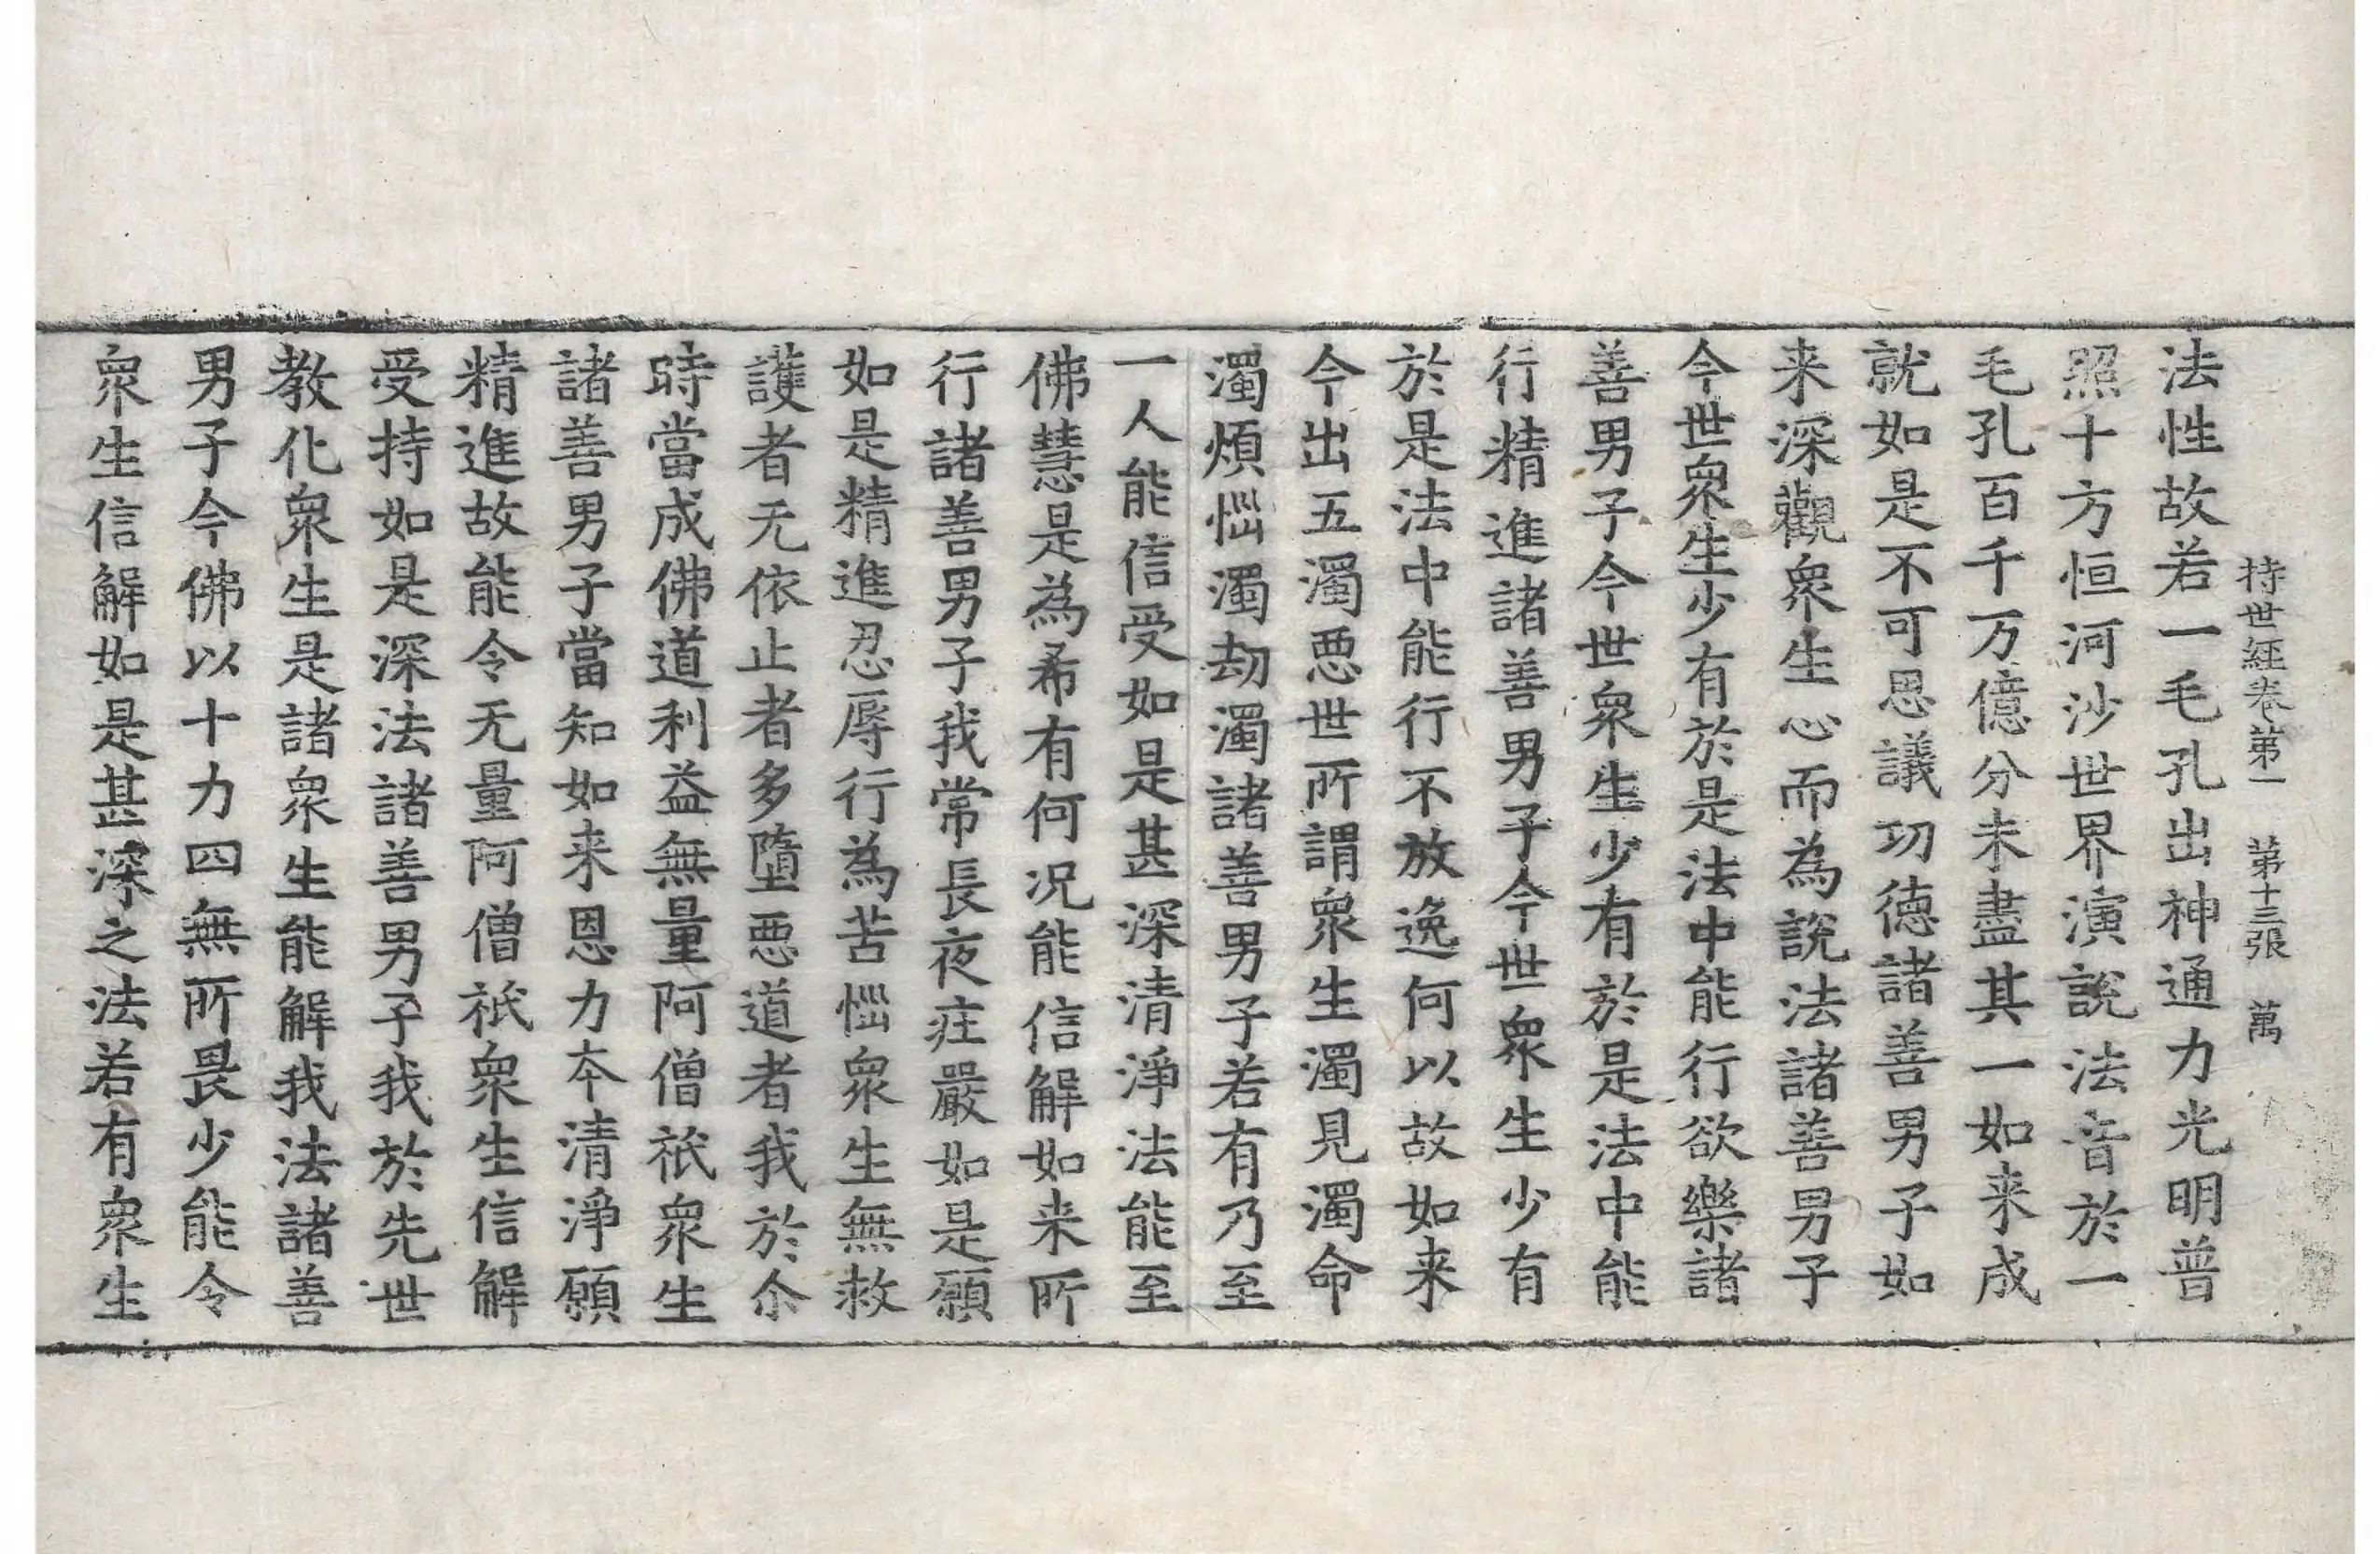 持世經卷第一 第十三張 萬
法性故若一毛孔出神通力光明普
照十方恒河沙世界演說法音於一
毛孔百千万億分未盡其一如来成
就如是不可思議切德諸善男子如
来深觀衆生心而為說法諸善男子
今世衆生少有於是法中能行欲樂諸
善男子今世衆生少有於是法中能
行精進諸善男子今世衆生少有
於是法中能行不放逸何以故如来
今出五濁悪世所謂衆生濁見濁命
濁煩惱濁劫濁諸善男子若有乃至
一人能信受如是甚深清淨法能至
佛慧是為希有何况能信解如来所
行諸善男子我常長夜莊嚴如是願
如是精進忍辱行為苦惱衆生無救
護者无依止者多墮悪道者我於尒
時當成佛道利益無量阿僧祇衆生
諸善男子當知如来恩力夲清淨願
精進故能令无量阿僧祇衆生信解
受持如是深法諸善男子我於先世
教化衆生是諸衆生能解我法諸善
男子今佛以十力四無所畏少能令
衆生信解如是甚深之法若有衆生